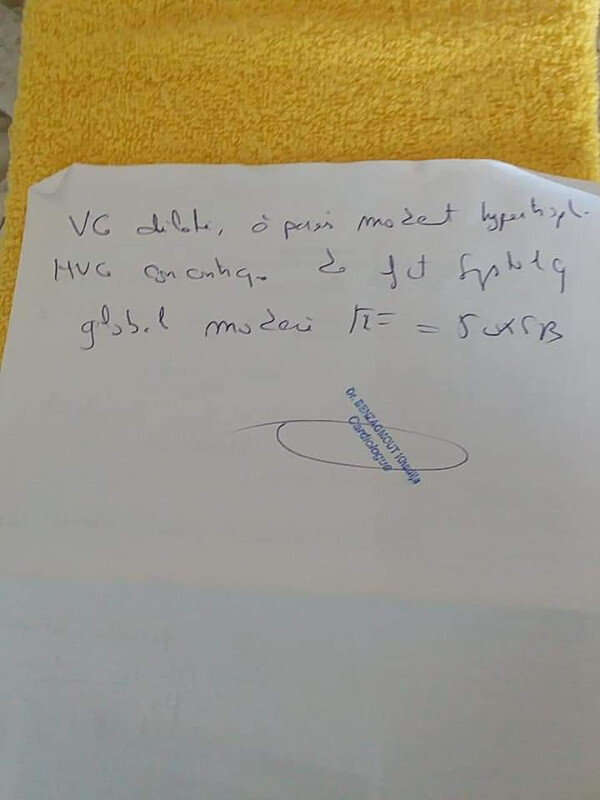 VG dilaté, à parois modert hypertroph.
HVG concentriq. de fct systolq
global modéré FE =
Dr. BENZAGMOUT Khadija
Cardiologue